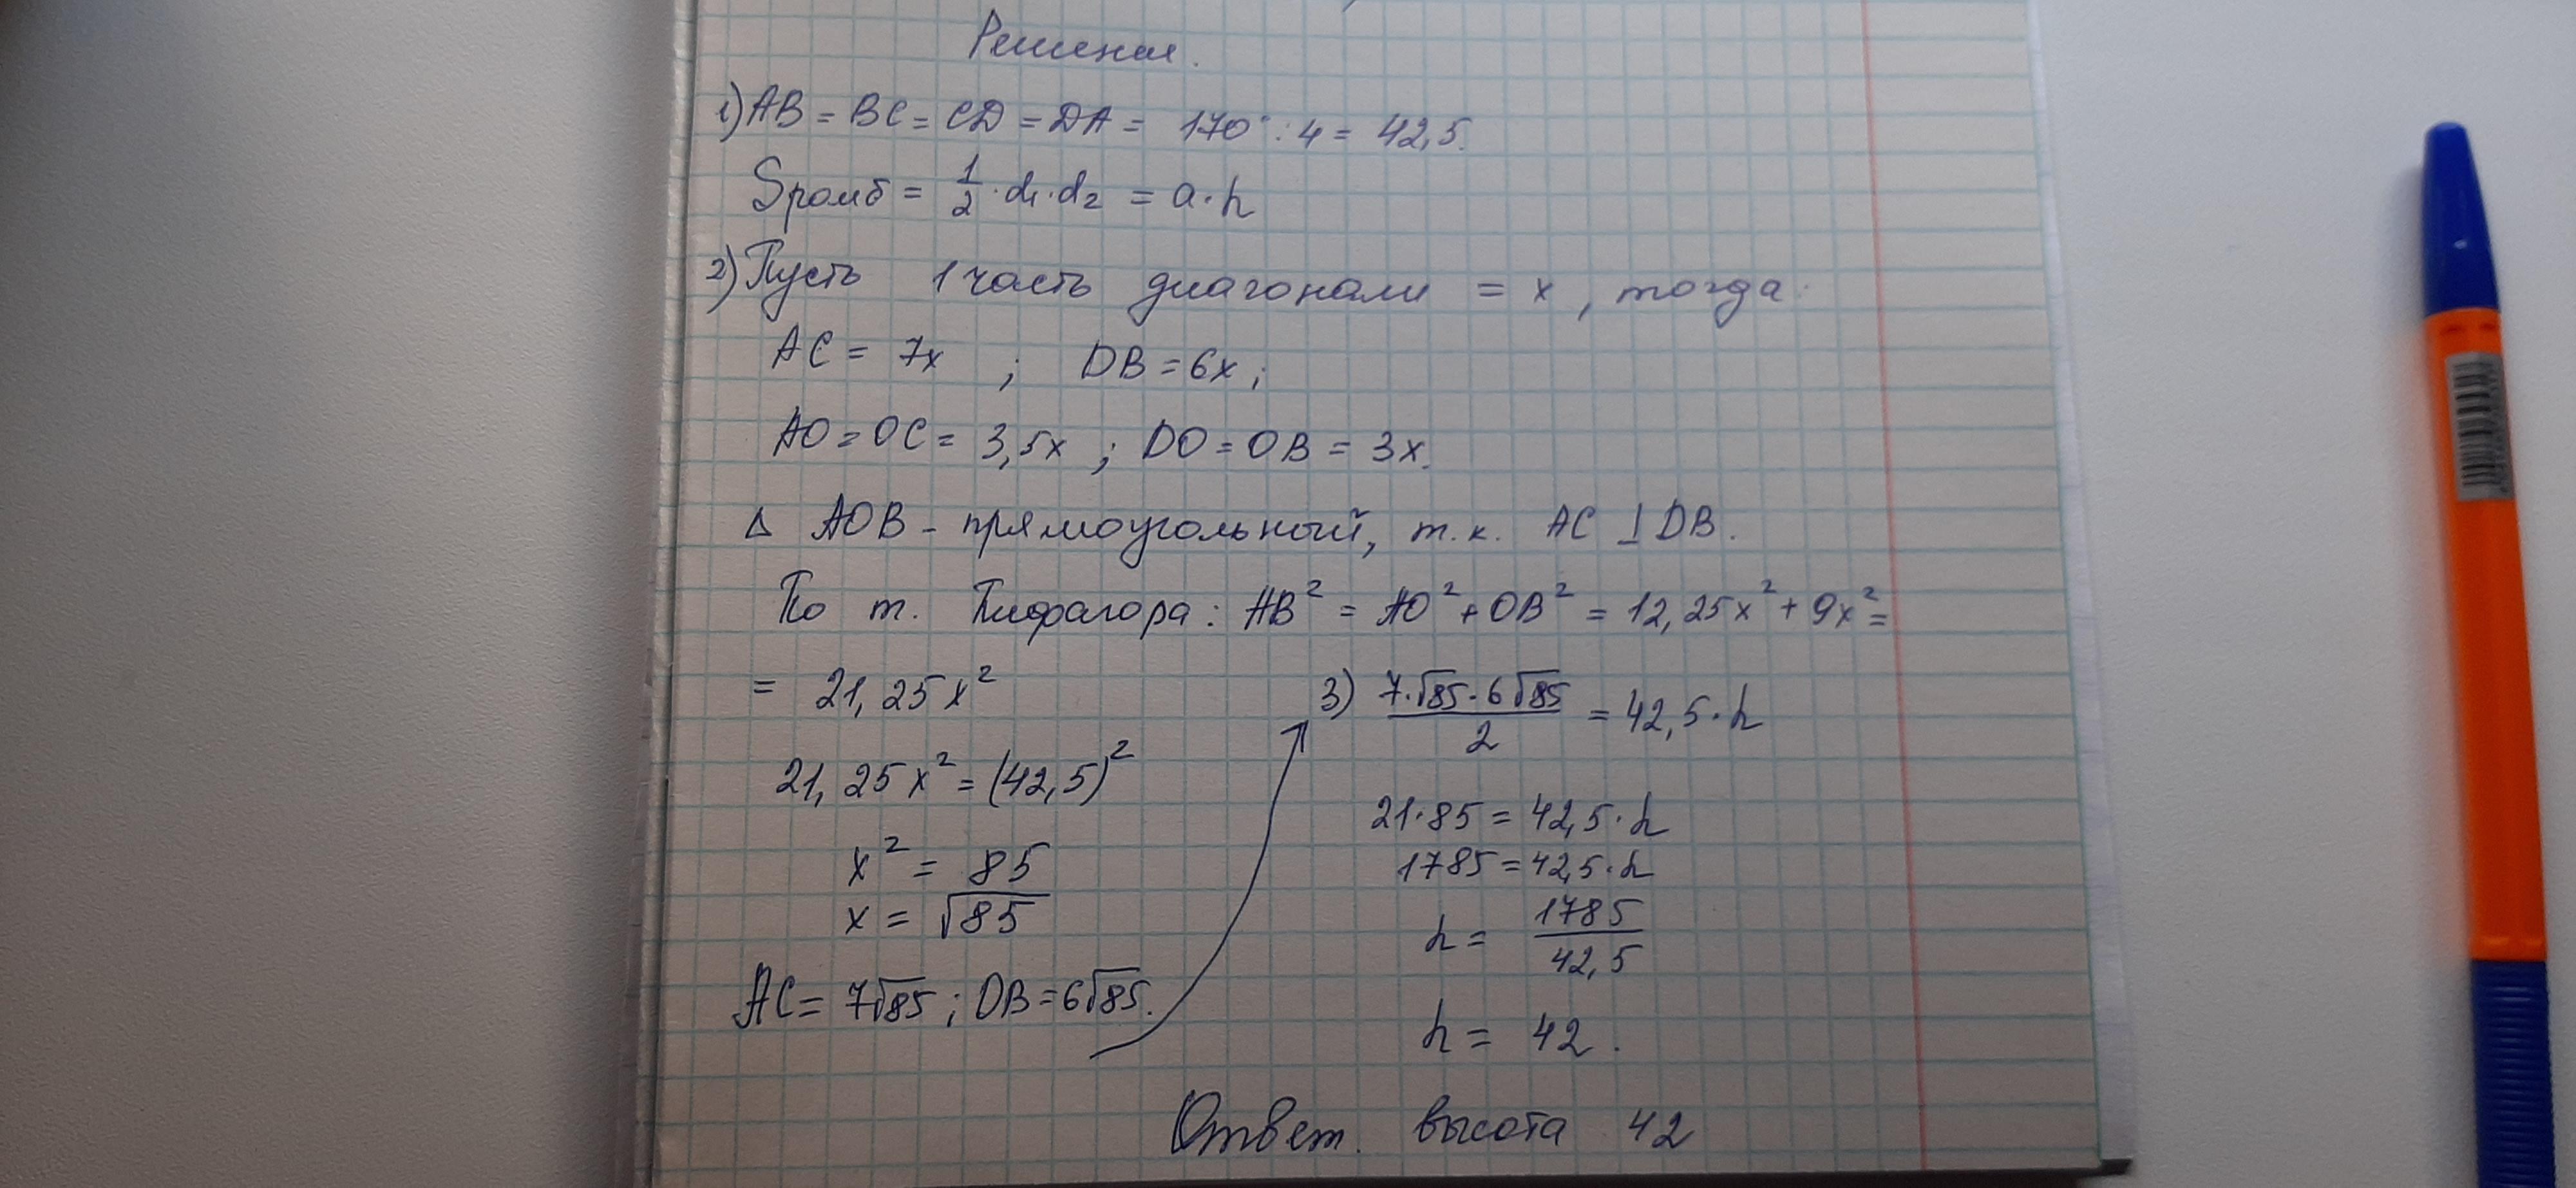 Решение.
1) AB = BC = CD = DA = 170 : 4 = 42,5.
Sромб = 1/2 · d1 · d2 = a · h
2) Пусть 1 часть диагонали = x, тогда:
AC = 7x ; DB = 6x ;
AO = OC = 3,5x ; DO = OB = 3x.
Δ AOB - прямоугольный, т.к. AC ⊥ DB.
По т. Пифагора: AB² = AO² + OB² = 12,25x² + 9x² =
= 21,25x²
21,25x² = (42,5)²
x² = 85
x = √85
AC = 7√85 ; DB = 6√85.
3) 7·√85 · 6√85 / 2 = 42,5 · h
21 · 85 = 42,5 · h
1785 = 42,5 · h
h = 1785 / 42,5
h = 42.
Ответ. высота 42